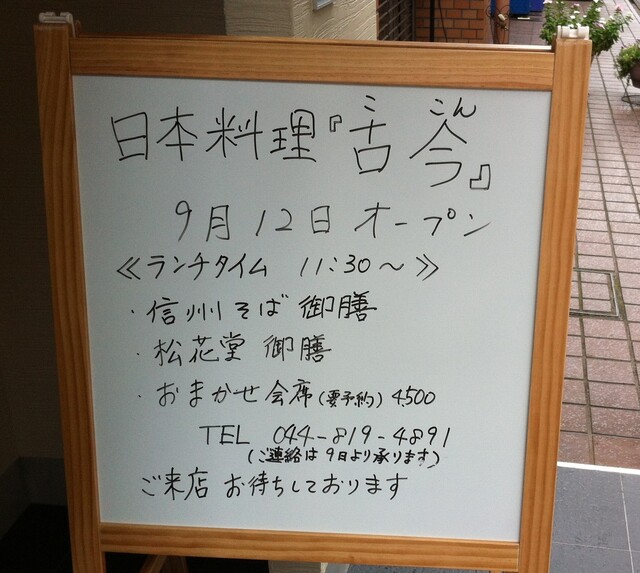 ここん
日本料理『古今』
9月12日 オープン
≪ランチタイム 11:30〜≫
・信州そば 御膳
・松花堂 御膳
・おまかせ会席(要予約) 4,500
TEL 044-819-4891
(ご連絡は9日より承ります)
ご来店 お待ちしております